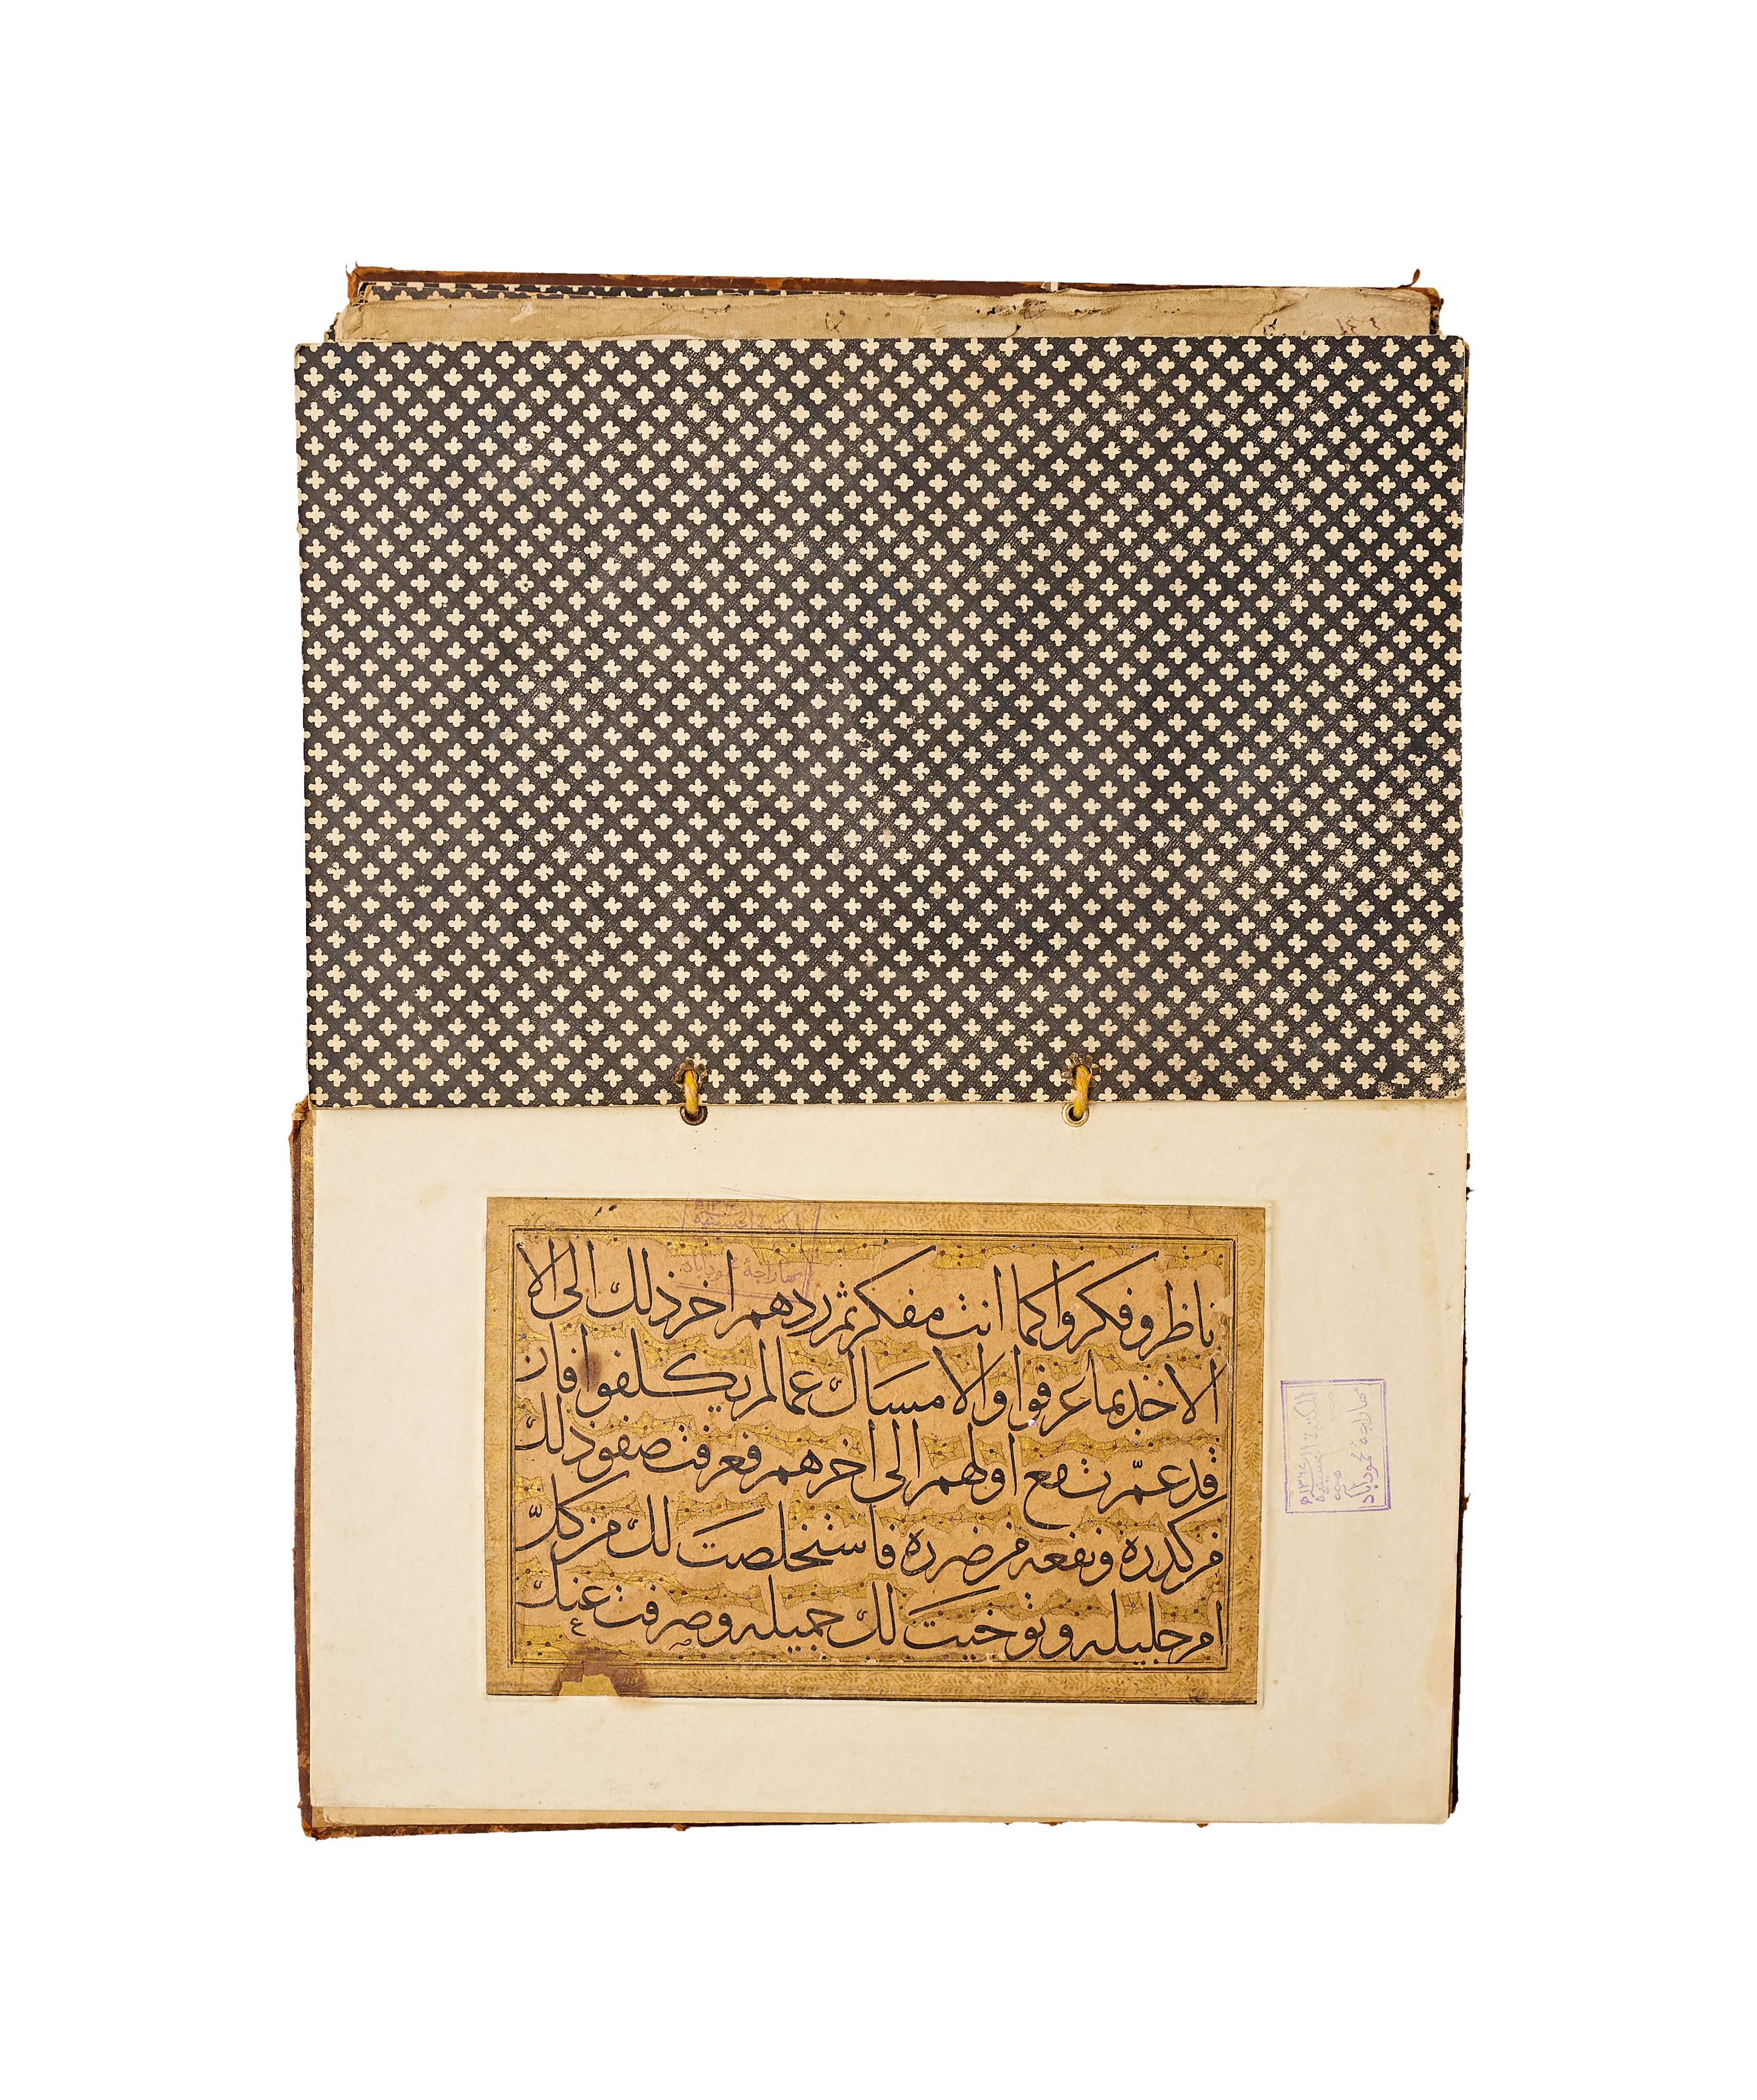 ناظر وفكروا كما انت مفكر ثم ردهم اخر ذلك الى الا
الاخذ بما عرفوا والامساك عما لم يكلفوا فان
قد عمّرت مع اولهم الى اخرهم فعرفت صفو ذلك
من كدره ونفعه من ضرره فاستخلصت لك من كلّ
امر جليله وتوخيت لك جميله وصرفت عنك
مهاراجة محمودآباد
المكتبة
مهاراجة محمودآباد